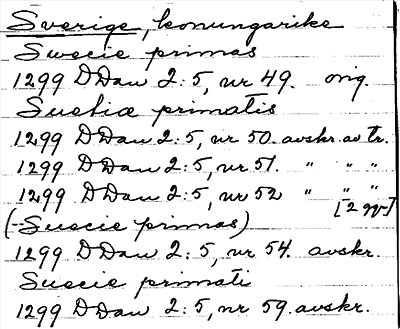 Sverige, konungarike
Swecie primas
1299 DDan 2:5, nr 49. orig.
Suethie primatis
1299 DDan 2:5, nr 50. avskr. av tr.
1299 DDan 2:5, nr 51. " " "
1299 DDan 2:5, nr 52 " " "
[2 ggr]
(-Suecie primas)
1299 DDan 2:5, nr 54. avskr.
Suecie primati
1299 DDan 2:5, nr 59. avskr.